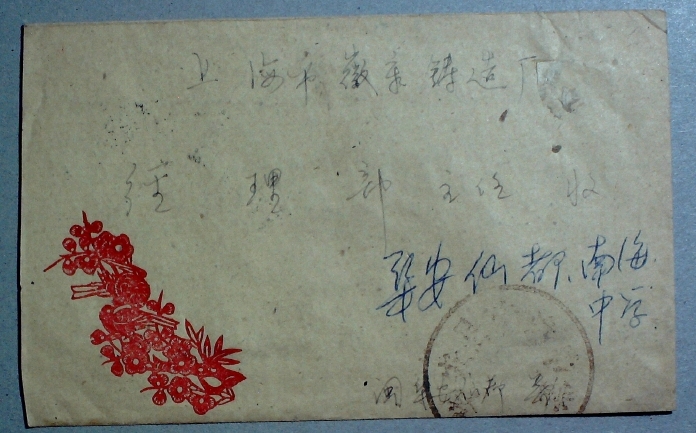 上海市徽章铸造厂
经理部主任收
华安仙都.南海.
中学
闽华安仙都